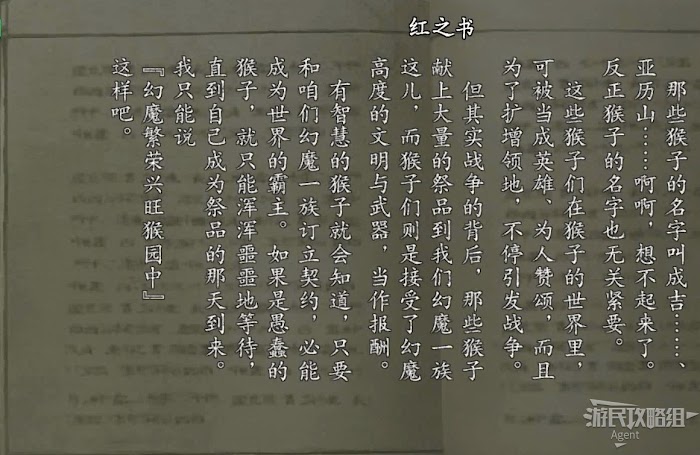 红之书
那些猴子的名字叫成吉……、
亚历山……啊啊，想不起来了。
反正猴子的名字也无关紧要。
这些猴子们在猴子的世界里，
可被当成英雄、为人赞颂，而且
为了扩增领地，不停引发战争。
但其实战争的背后，那些猴子
献上大量的祭品到我们幻魔一族
这儿，而猴子们则是接受了幻魔
高度的文明与武器，当作报酬。
有智慧的猴子就会知道，只要
和咱们幻魔一族订立契约，必能
成为世界的霸主。如果是愚蠢的
猴子，就只能浑浑噩噩地等待，
直到自己成为祭品的那天到来。
我只能说
『幻魔繁荣兴旺猴园中』
这样吧。
游民攻略组
Agent